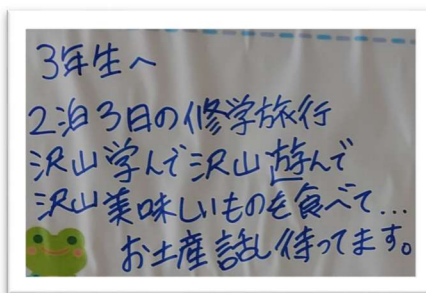 3年生へ
2泊3日の修学旅行
沢山学んで沢山遊んで
沢山美味しいものを食べて...
お土産話し待ってます。